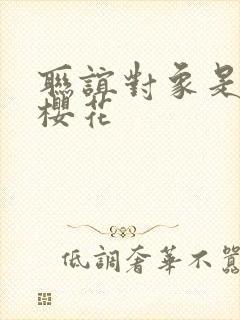 聯誼對象是
櫻花
低調奢華不囂